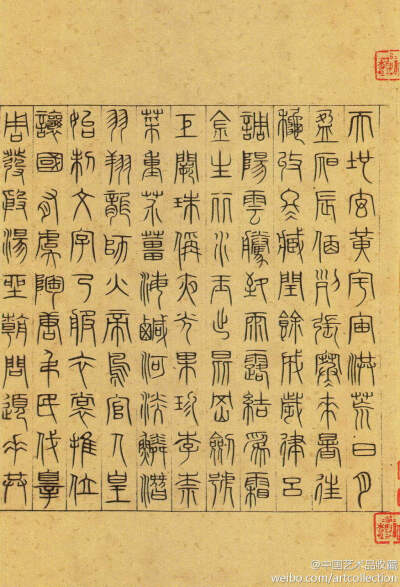 天地玄黃宇宙洪荒日月
盈昃辰宿列張寒來暑往
秋收冬藏閏餘成歲律呂
調陽雲騰致雨露結為霜
金生麗水玉出崑岡劍號
巨闕珠稱夜光果珍李柰
菜重芥薑海鹹河淡鱗潛
羽翔龍師火帝鳥官人皇
始制文字乃服衣裳推位
讓國有虞陶唐弔民伐辠
周發殷湯坐朝問道垂拱
@中国艺术品收藏
weibo.com/artcollection